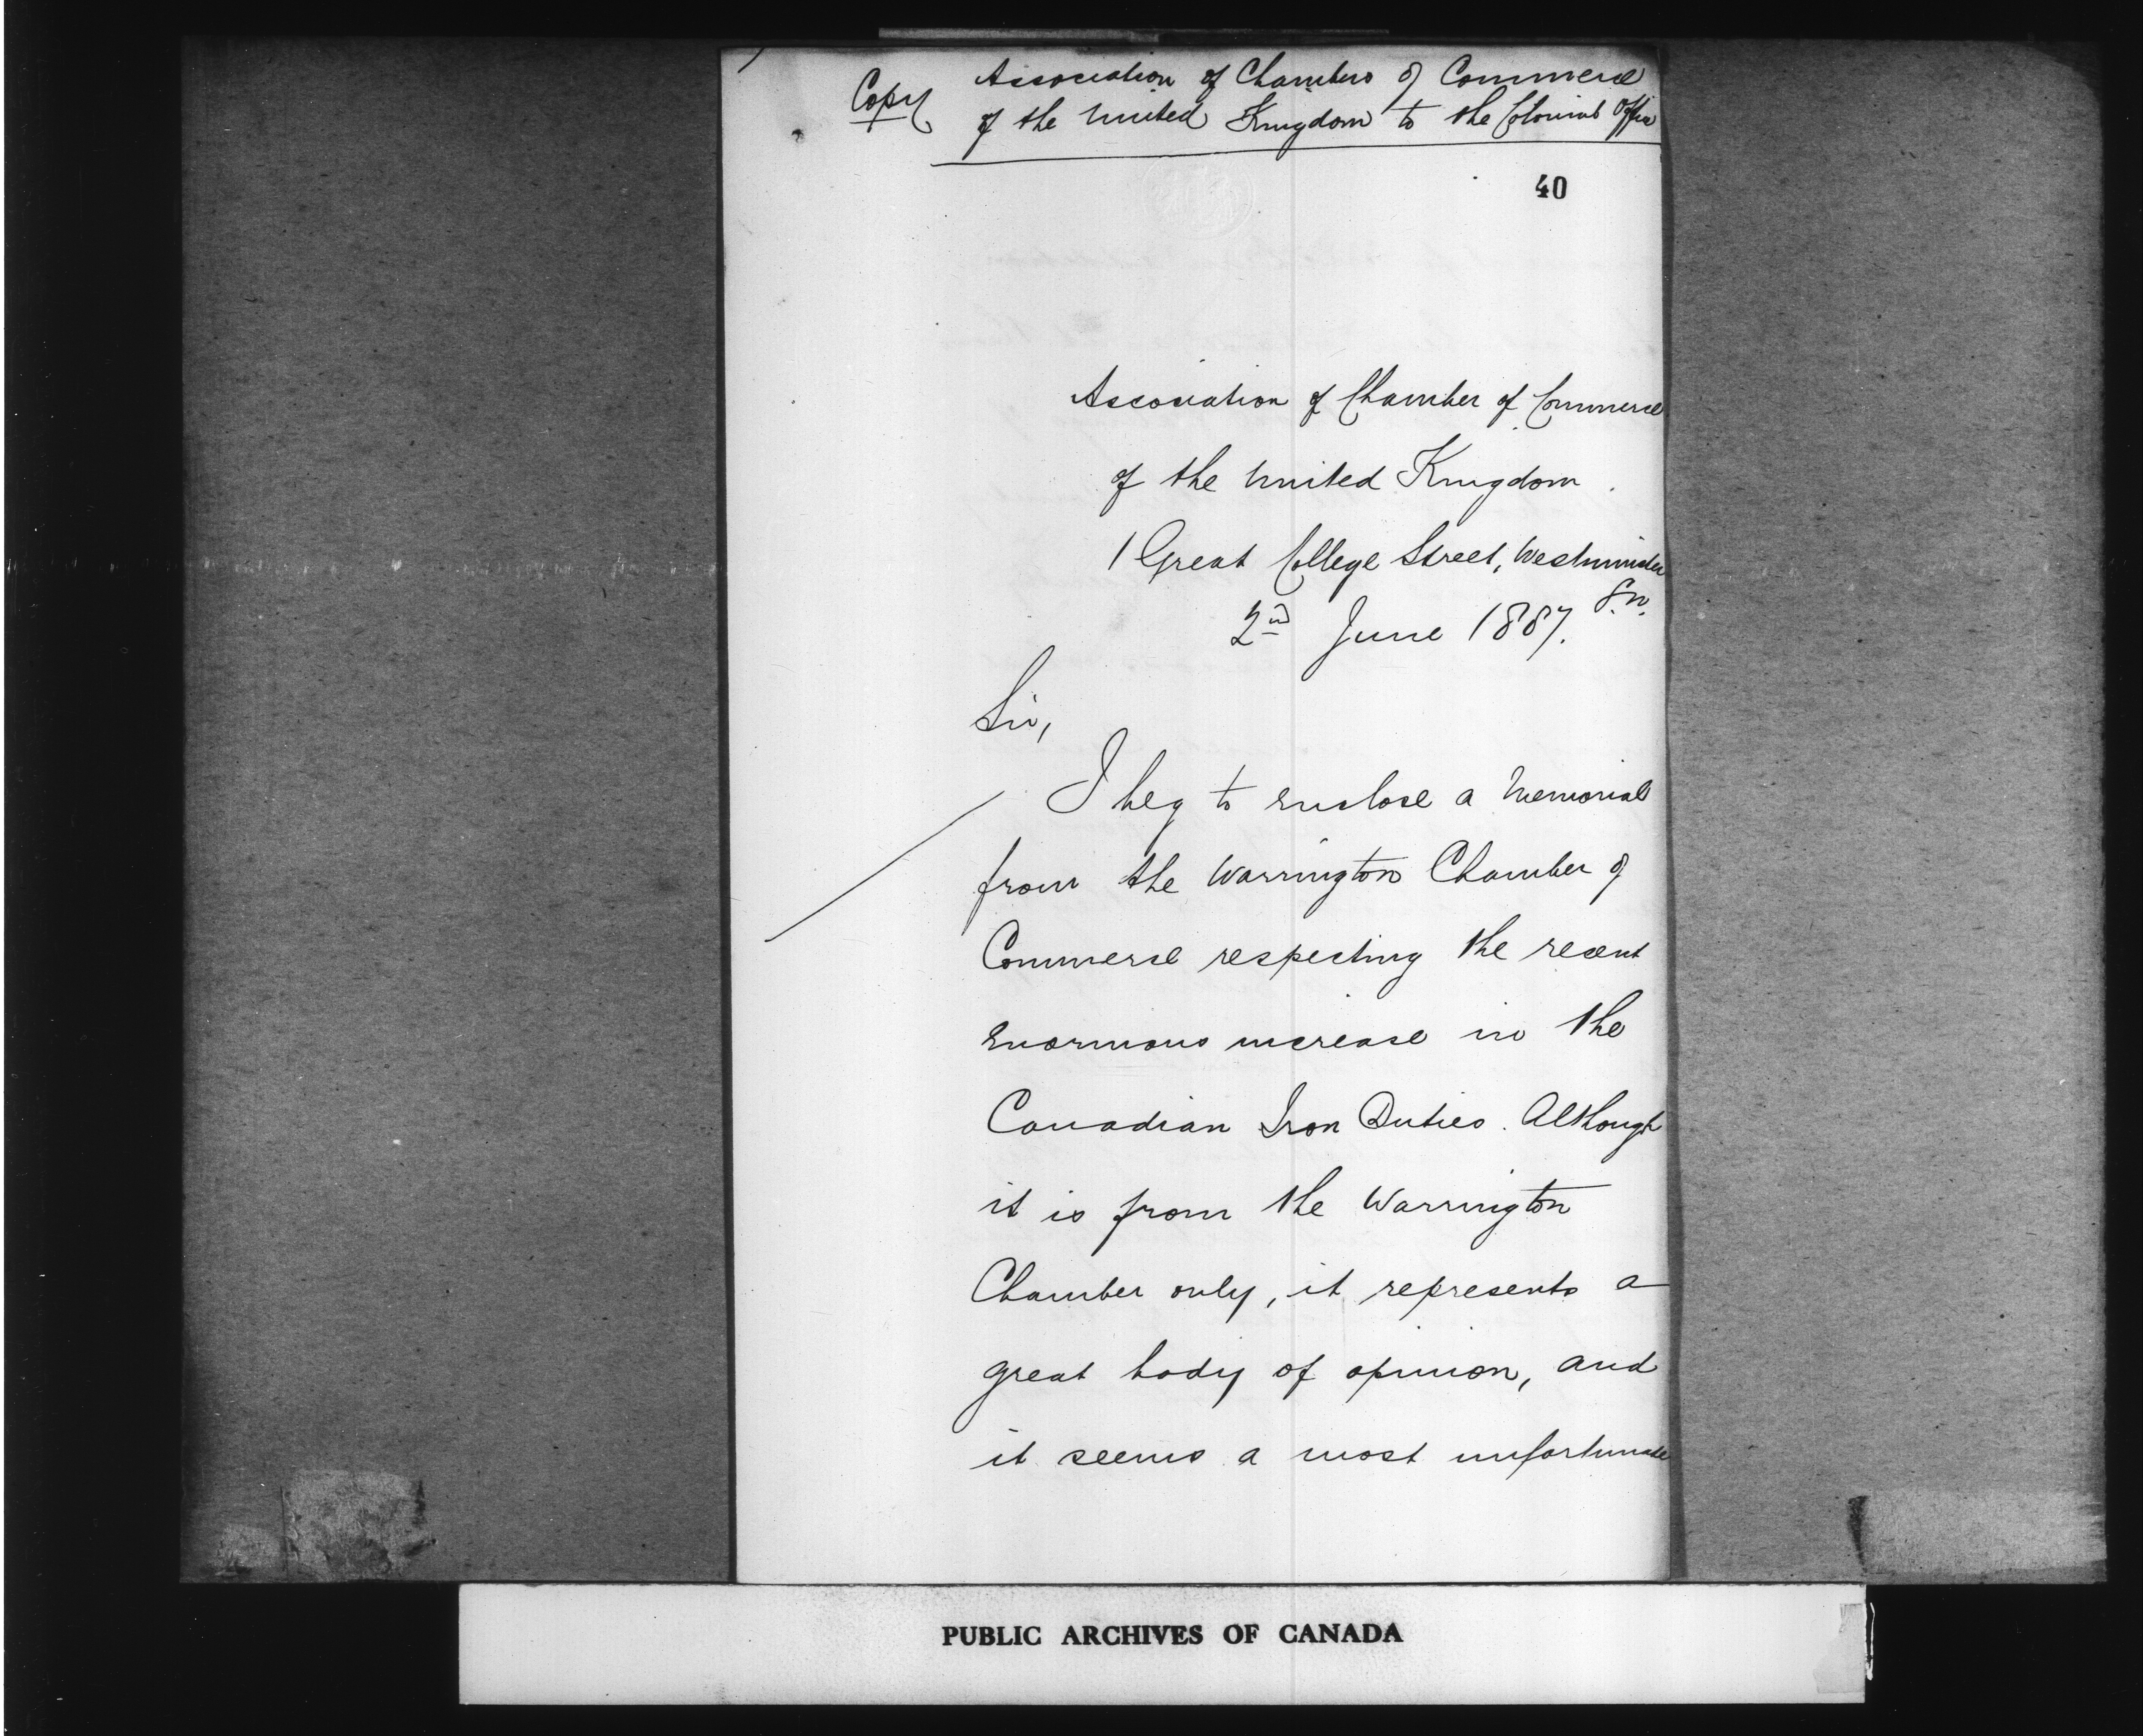 Copy
Association of Chambers of Commerce
of the United Kingdom to the Colonial Office
40
Association of Chamber of Commerce
of the United Kingdom.
1 Great College Street, Westminster
S.W.
2nd June 1887.
Sir,
I beg to enclose a Memorial
from the Warrington Chamber of
Commerce respecting the recent
enormous increase in the
Canadian Iron Duties. Although
it is from the Warrington
Chamber only, it represents a
great body of opinion, and
it seems a most unfortunate
PUBLIC ARCHIVES OF CANADA